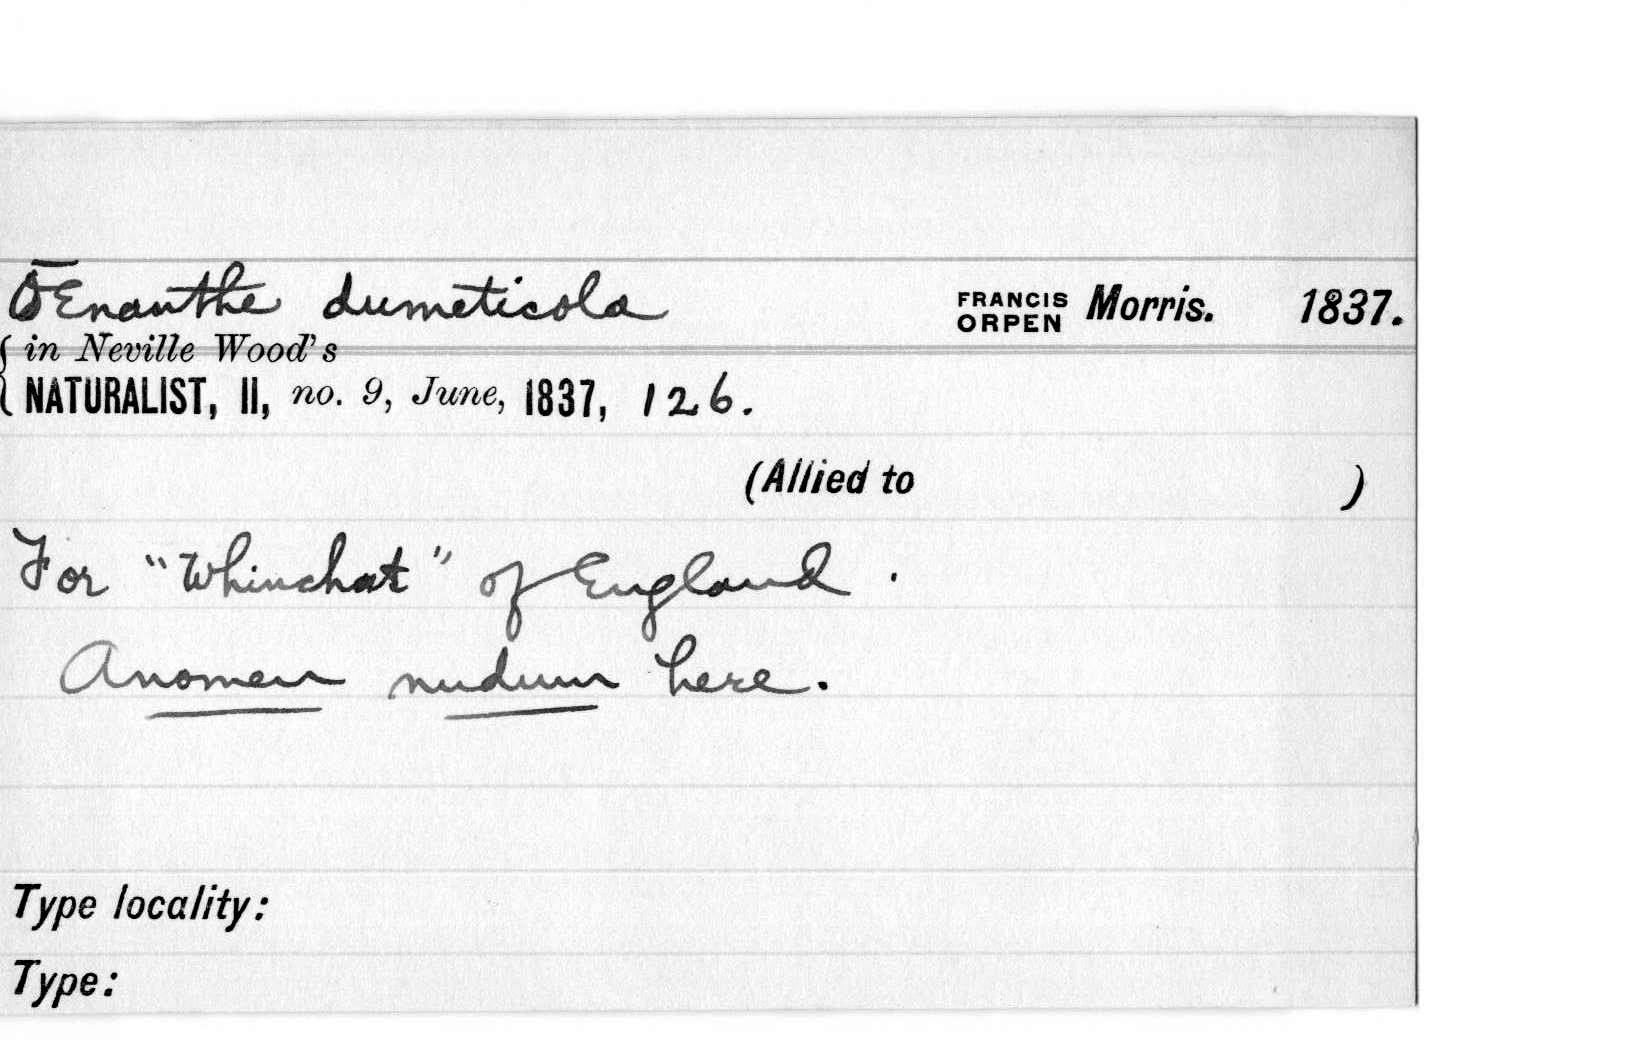 ŌEnanthe dumeticola FRANCIS ORPEN Morris. 1837.
{ in Neville Wood's
NATURALIST, II, no. 9, June, 1837, 126.
(Allied to )
For "Whinchat" of England.
A nomen nudum here.
Type locality:
Type: